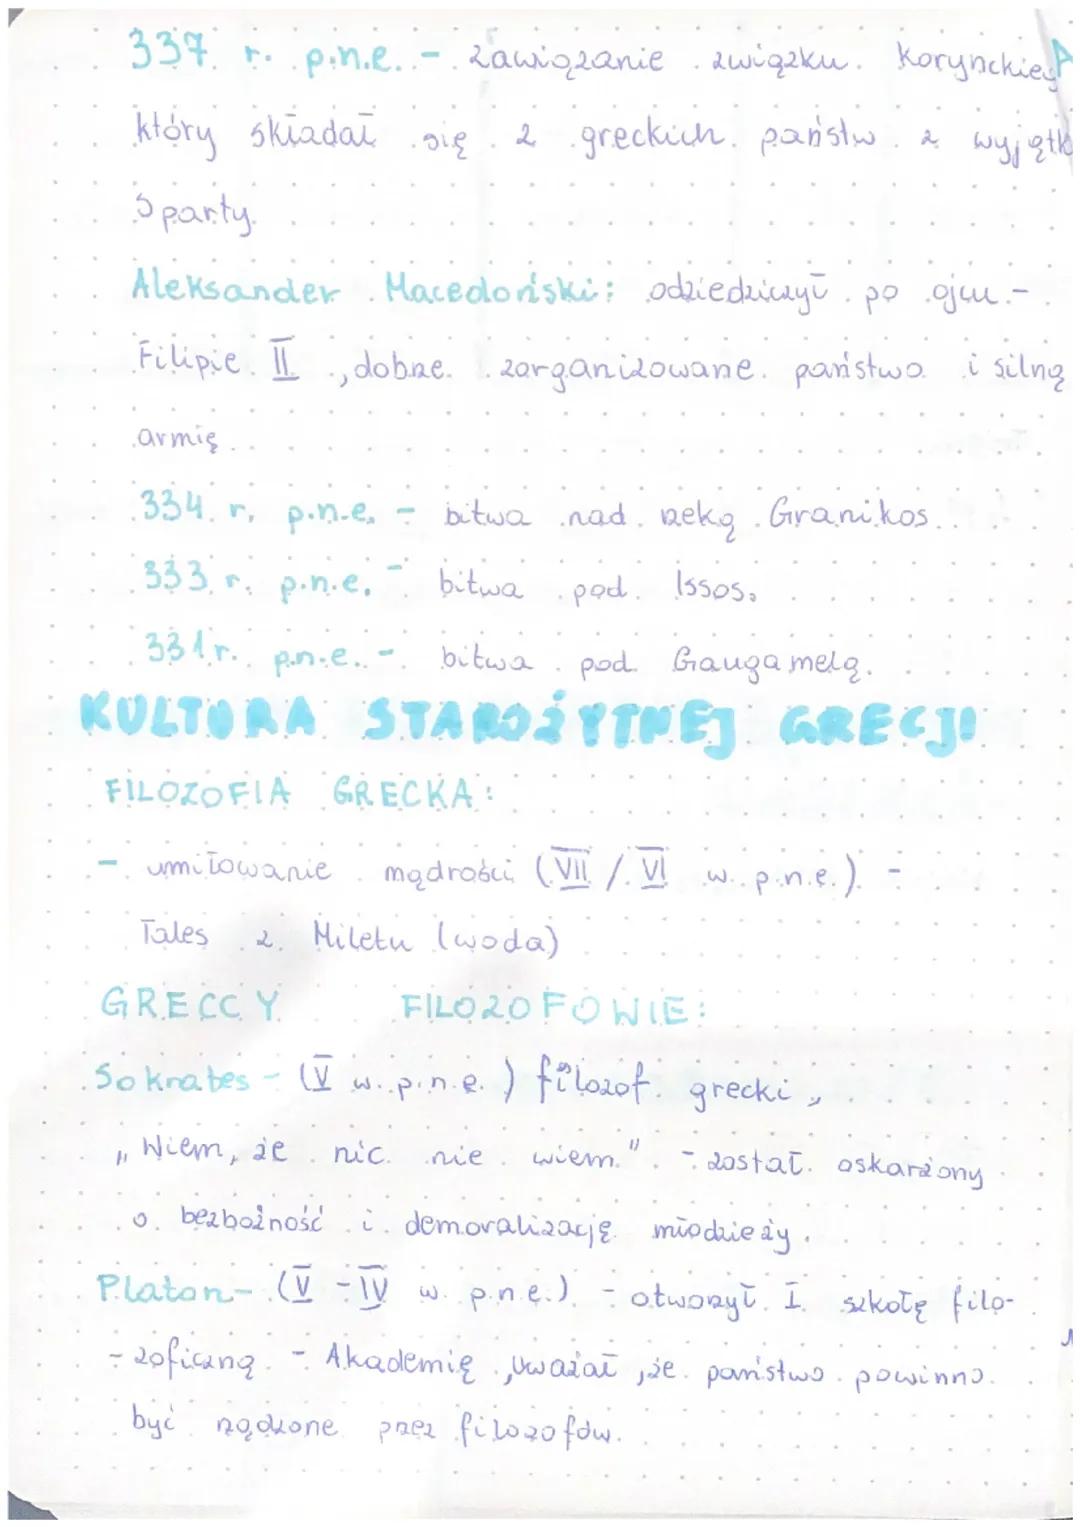 337 r. p.n.e. - zawiązanie związku Korynckieg
który składał się z greckich państw z wyjątk
Sparty.
Aleksander Macedoński: odziedziczył po ojcu -
Filipie II, dobrze zorganizowane państwo i silną
armię.
334 r. p.n.e. - bitwa nad rzeką Granikos.
333 r. p.n.e. - bitwa pod Issos.
331 r. p.n.e. - bitwa pod Gaugamelą.
KULTURA STAROŻYTNEJ GRECJI
FILOZOFIA GRECKA:
- umiłowanie mądrości (VII / VI w. p.n.e.) -
Tales z Miletu (woda)
GRECCY FILOZOFOWIE:
Sokrates - (V w. p.n.e.) filozof grecki,
„Wiem, że nic nie wiem." - został oskarżony
o bezbożność i demoralizację młodzieży.
Platon - (V - IV w. p.n.e.) - otworzył I szkołę filo-
- zoficzną - Akademię, uważał, że państwo powinno
być rządzone przez filozofów.